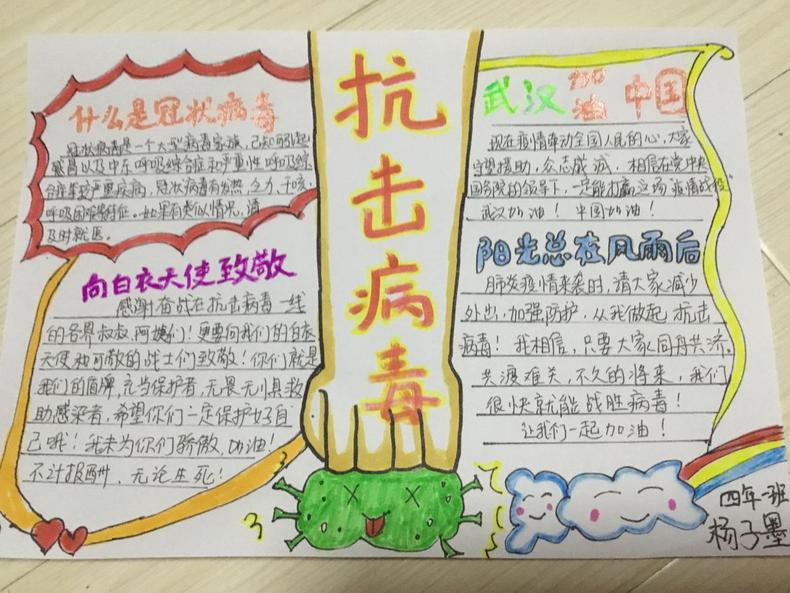 什么是冠状病毒
冠状病毒是一个大型病毒家族,已知可引起
感冒以及中东呼吸综合症和严重性呼吸综
合症等较严重疾病,冠状病毒有发热、乏力、干咳、
呼吸困难等特征。如果有类似情况,请
及时就医。
向白衣天使致敬
感谢奋战在抗击病毒一线
的各界叔叔,阿姨们!更要向我们的白衣
天使和可敬的战士们致敬!你们就是
我们的盾牌,充当保护者,无畏无惧救
助感染者,希望你们一定保护好自
己哦!我未为你们骄傲,加油!
不计报酬,无论生死!
抗击病毒
武汉加油 中国
现在疫情牵动全国人民的心,大家
守望援助,众志成诚,相信在党中央
国务院的领导下,一定能打赢这场疫情战役
武汉加油!中国加油!
阳光总在风雨后
肺炎疫情来袭时,请大家减少
外出,加强防护,从我做起,抗击
病毒!我相信,只要大家同舟共济,
共渡难关,不久的将来,我们
很快就能战胜病毒!
让我们一起加油!
四年一班
杨子墨